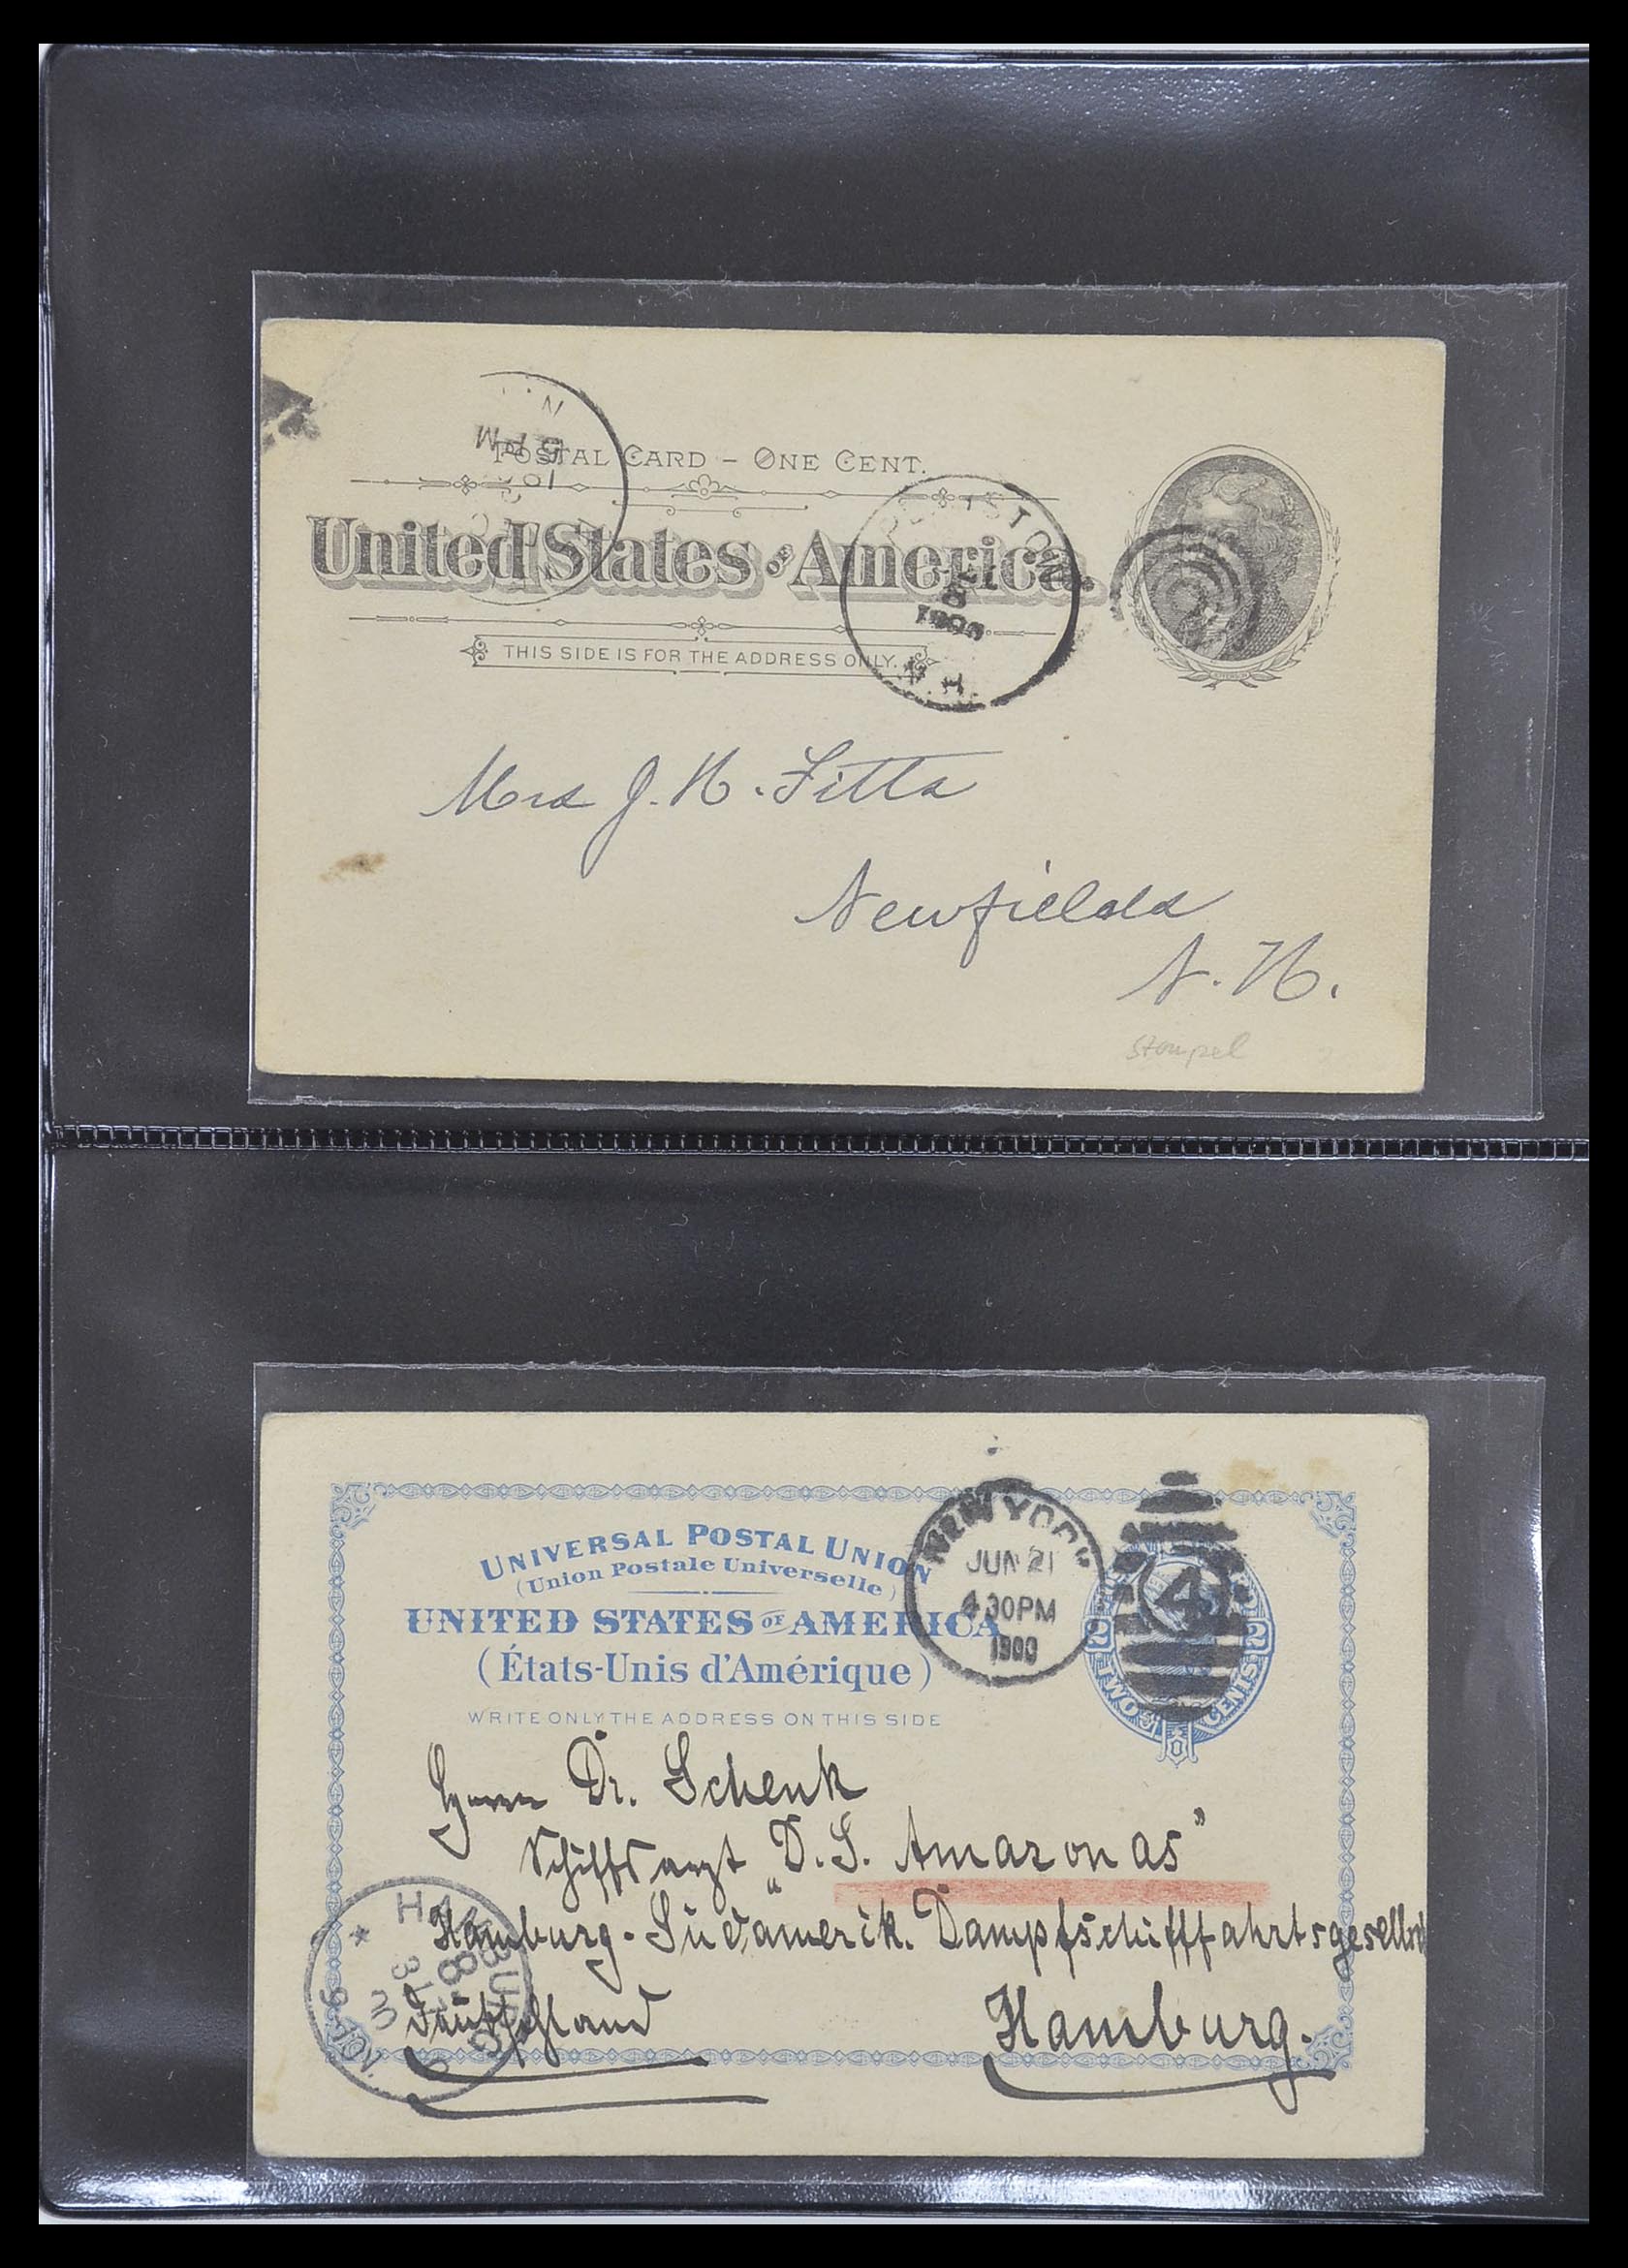 POSTAL CARD – ONE CENT.
United States of America.
THIS SIDE IS FOR THE ADDRESS ONLY.
PM
N.H.
Mrs J. H. Fitts
Newfields
N. H.
stempel
UNIVERSAL POSTAL UNION
(Union Postale Universelle)
UNITED STATES OF AMERICA
(États-Unis d'Amérique)
WRITE ONLY THE ADDRESS ON THIS SIDE
NEW YORK
JUN 21
4 30PM
1900
4
2 2
TWO CENTS
Herrn Dr. Schenk
Schiffsarzt „D. S. Amazonas"
Hamburg-Südamerik. Dampfschifffahrtsgesellsch
Deutschland
Hamburg.
HAMBURG
8.
3/7
00
9-10N.